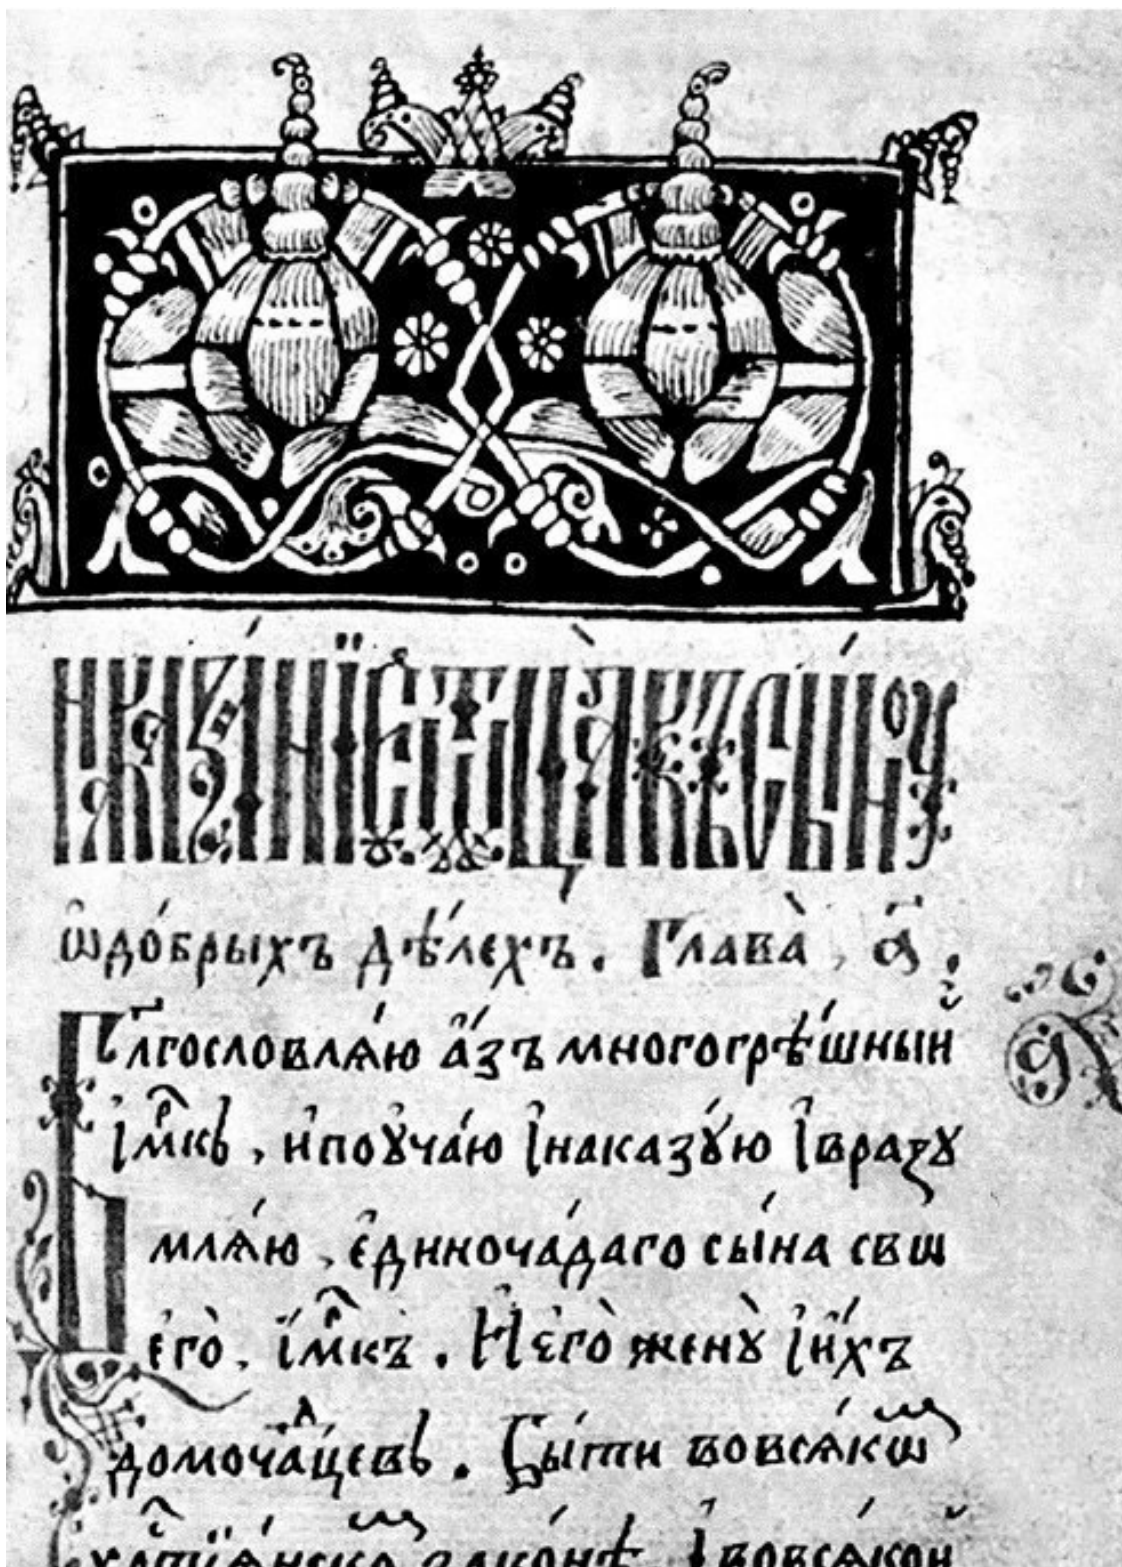 Наказание ѿ ѡц҃а къ сы́нꙋ
ѡ до́брыхъ дѣ́лехъ. Глава̀, а҃.
Бл҃гословлѧ́ю а҆́зъ многогрѣ́шный
і҆мк҃ъ, и҆ поꙋча́ю і҆ наказꙋ́ю і҆ вразꙋ
млѧ́ю, є҆диноча́даго сы́на свѡ
его̀, і҆мк҃ъ. И҆ его̀ женꙋ̀ і҆ и҆́хъ
домоча́дцевъ. Бы́ти во всѧ́кѡм
хрⷭ҇тїѧ́нском зако́нѣ і҆ во всѧ́кой